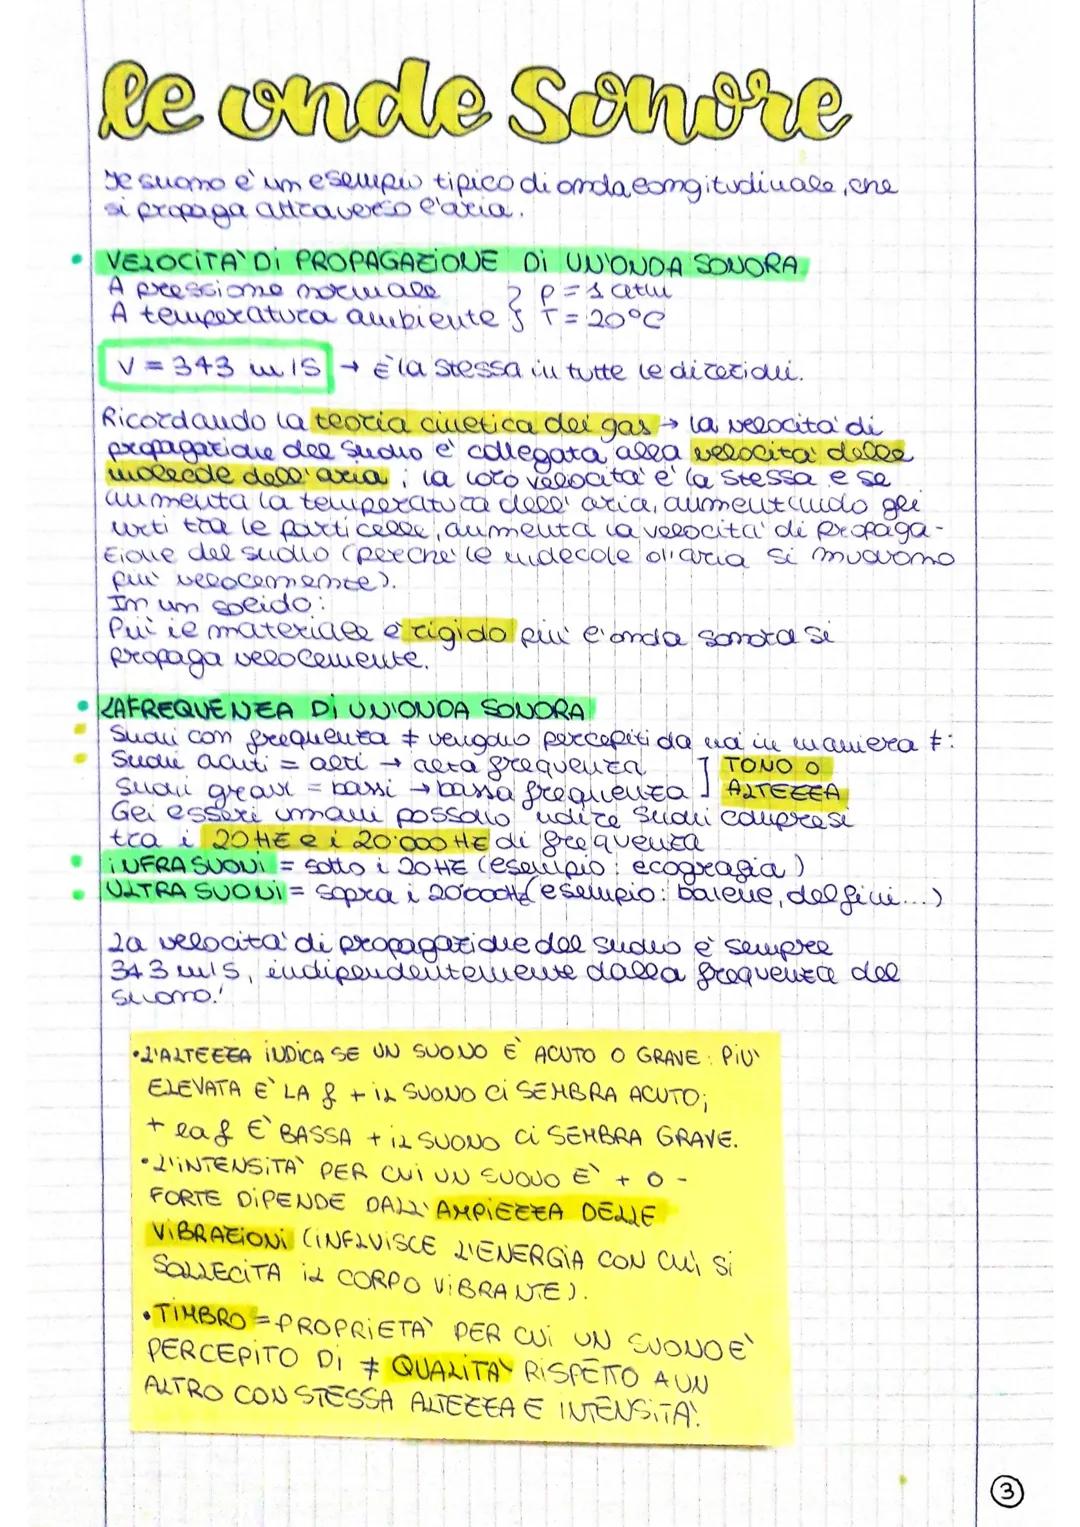 le onde sonore
Il suono è un esempio tipico di onda longitudinale, che
si propaga attraverso l'aria.
• VELOCITA' Di PROPAGAZIONE Di UN'ONDA SONORA
A pressione normale } P = 1 atm
A temperatura ambiente } T = 20°C
V = 343 m/s → È la stessa in tutte le direzioni.
Ricordando la teoria cinetica dei gas → la velocità di
propagazione del suono è collegata alla velocità delle
molecole dell'aria; la loro velocità è la stessa e se
aumenta la temperatura dell'aria, aumentando gli
urti tra le particelle, aumenta la velocità di propaga-
zione del suono (perché le molecole d'aria si muovono
più velocemente).
In un solido:
Più il materiale è rigido più l'onda sonora si
propaga velocemente.
• LA FREQUENZA Di UN'ONDA SONORA
• Suoni con frequenza ≠ vengono percepiti da noi in maniera ≠:
• Suoni acuti = alti → alta frequenza ] TONO O
Suoni gravi = bassi → bassa frequenza ] ALTEZZA
Gli esseri umani possono udire suoni compresi
tra i 20 HZ e i 20'000 HZ di frequenza
• iNFRASUONi = sotto i 20 HZ (esempio: ecografia)
• ULTRASUONi = sopra i 20'000Hz (esempio: balene, delfini...)
La velocità di propagazione del suono è sempre
343 m/s, indipendentemente dalla frequenza del
suono!
• L'ALTEZZA iNDiCA SE UN SUONO È ACUTO O GRAVE: PIU'
ELEVATA E' LA f + iL SUONO Ci SEMBRA ACUTO;
+ la f E' BASSA + iL SUONO Ci SEMBRA GRAVE.
• L'iNTENSiTA' PER CUi UN SUONO E' + O -
FORTE DiPENDE DALL'AMPiEZZA DELLE
ViBRAZiONi (iNFLUiSCE L'ENERGiA CON CUi Si
SOLLECiTA iL CORPO ViBRANTE).
• TiMBRO = PROPRiETA' PER CUi UN SUONO E'
PERCEPiTO Di ≠ QUALiTA' RiSPETTO A UN
ALTRO CON STESSA ALTEZZA E iNTENSiTA'.
3